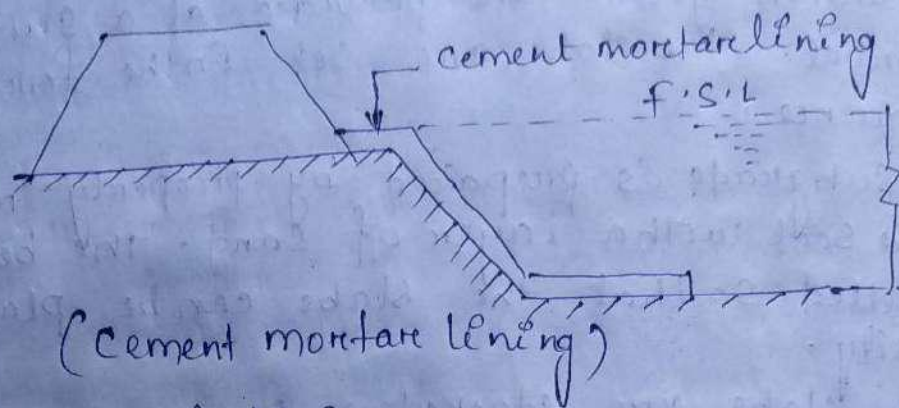 cement moretare lining
f.s.L
(cement moretare lining)